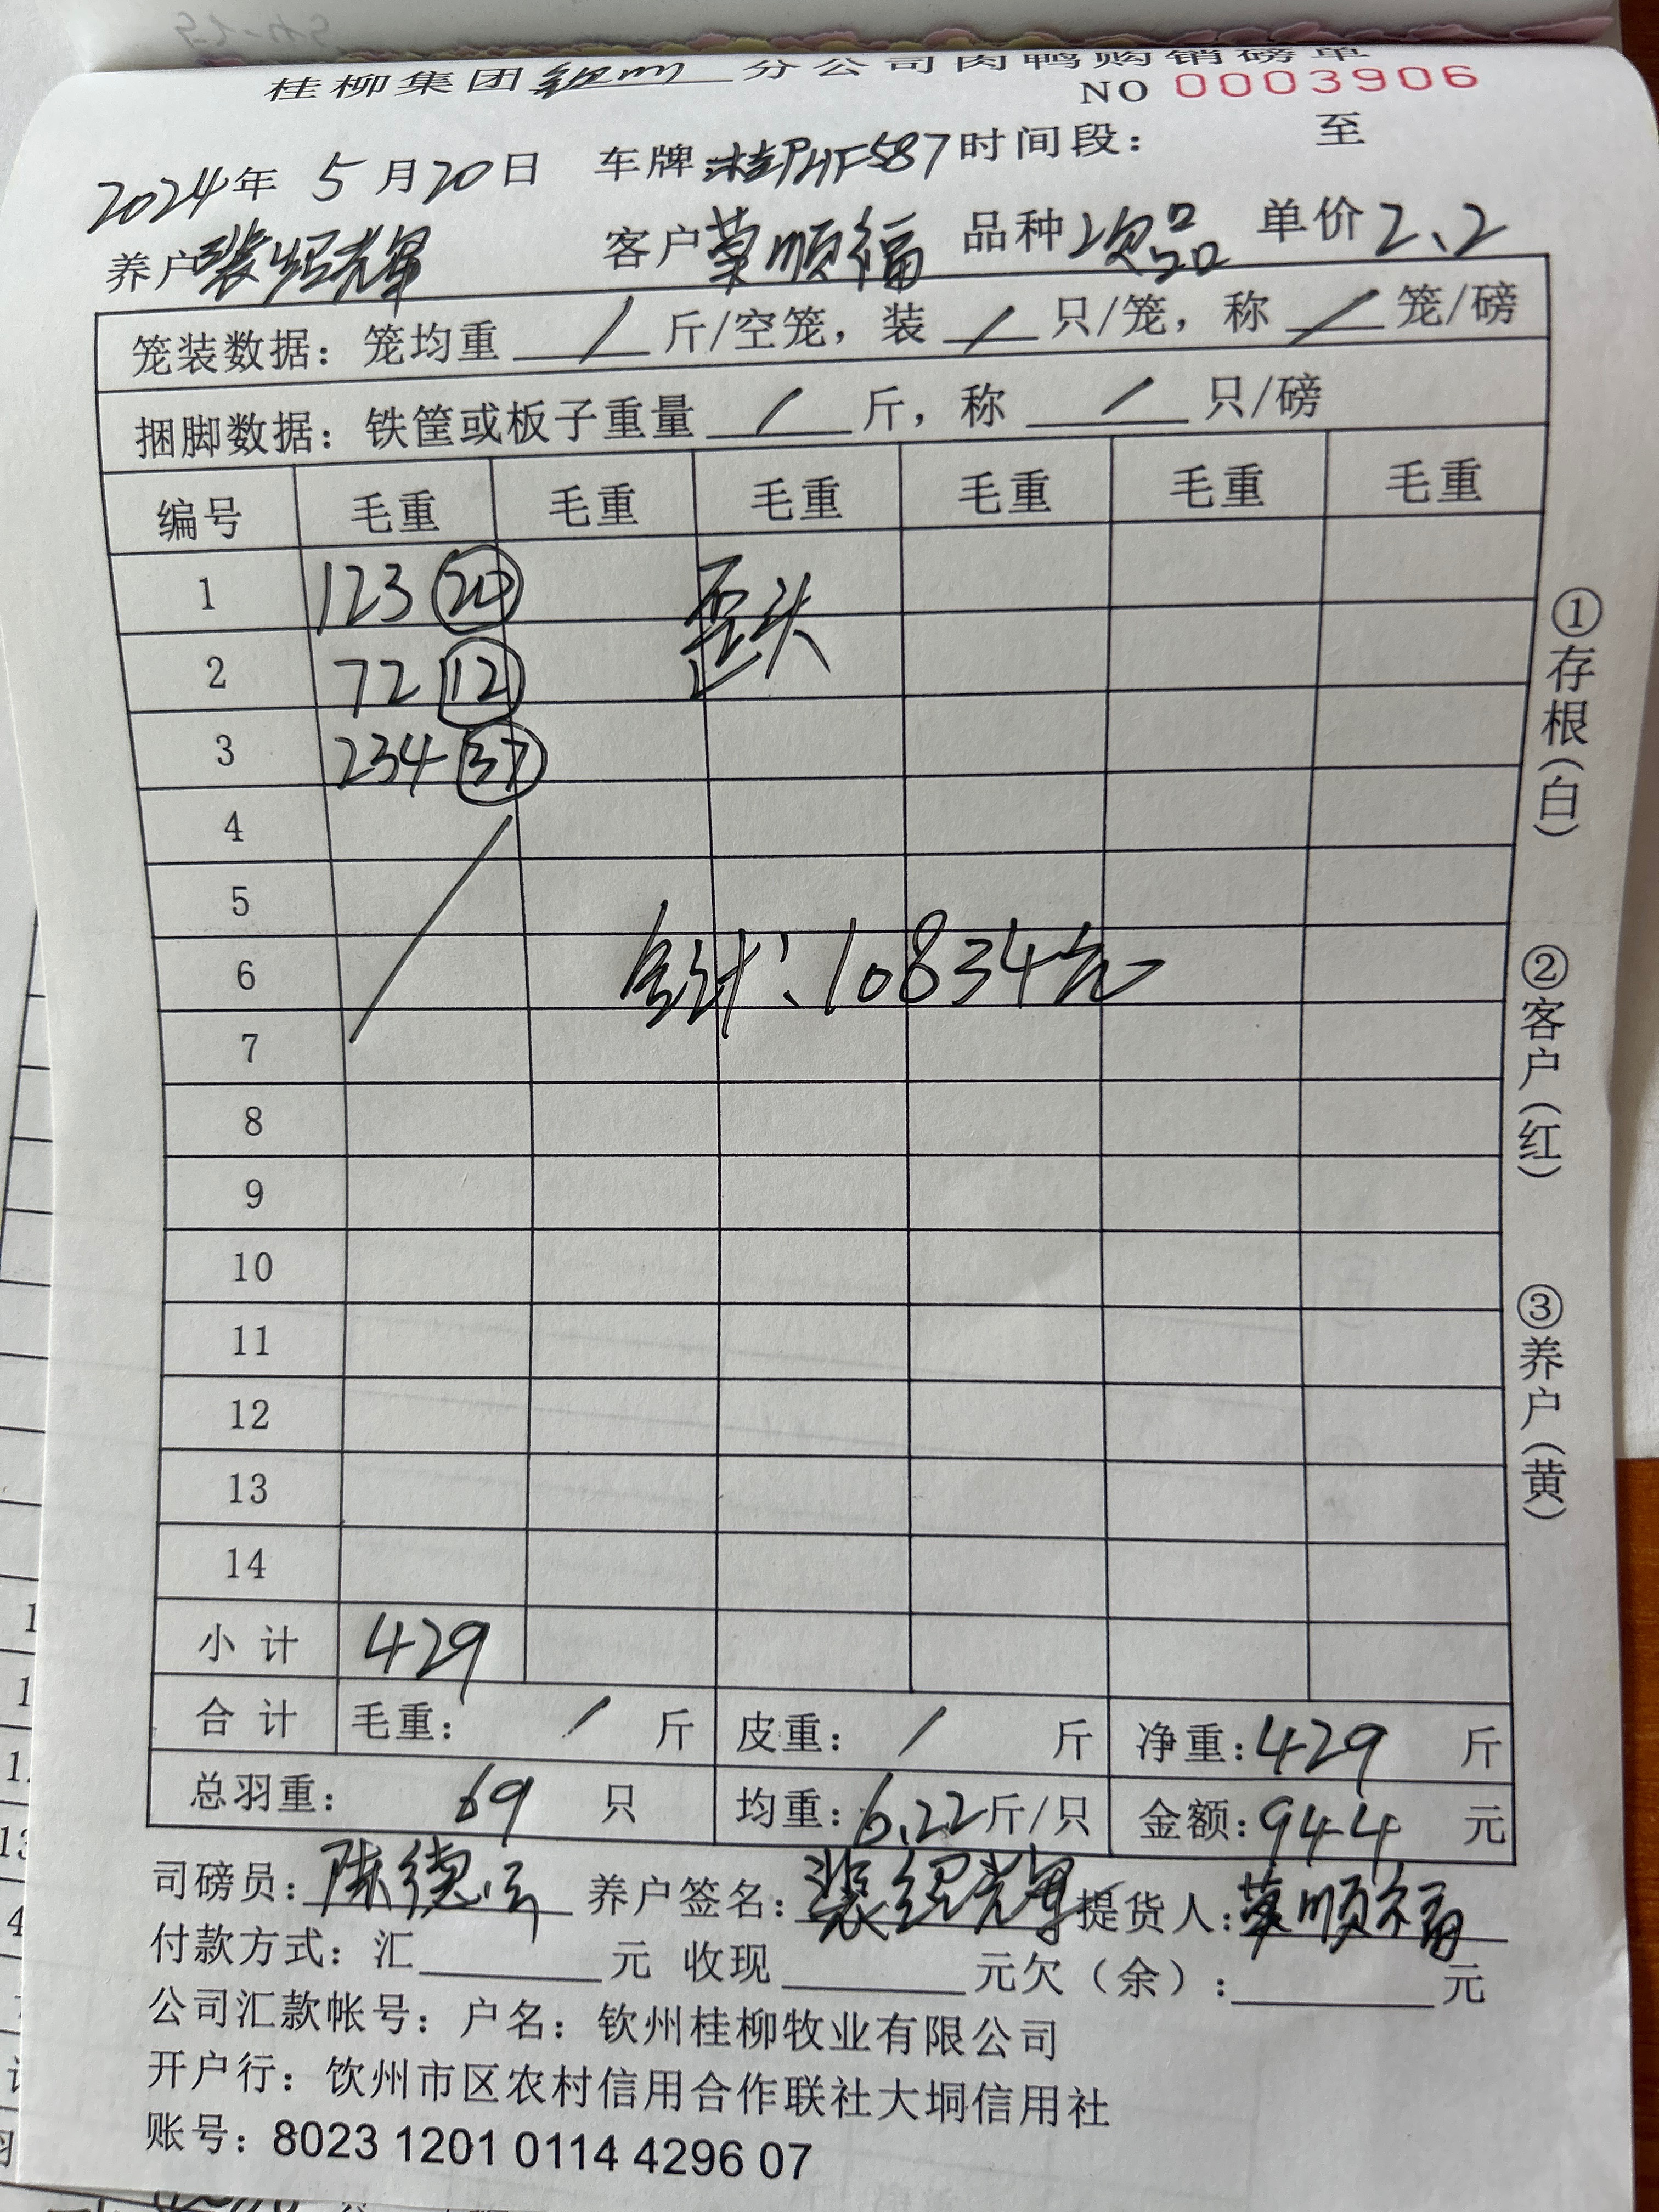 桂柳集团钦州分公司肉鸭购销磅单
NO 0003906
2024年 5月20日 车牌:桂PHF587 时间段: 至
养户裴绍辉 客户莫顺福 品种次品 单价2.2
笼装数据:笼均重 / 斤/空笼,装 / 只/笼,称 / 笼/磅
捆脚数据:铁筐或板子重量 / 斤,称 / 只/磅
编号 毛重 毛重 毛重 毛重 毛重 毛重
1 123 20 歪头
2 72 12
3 234 37
4
5
6 合计:10834元
7
8
9
10
11
12
13
14
小计 429
合计 毛重: / 斤 皮重: / 斤 净重:429 斤
总羽重: 69 只 均重:6.22斤/只 金额:944 元
司磅员:陈德 养户签名:裴绍辉 提货人:莫顺福
付款方式:汇 元 收现 元欠(余): 元
公司汇款帐号:户名:钦州桂柳牧业有限公司
开户行:饮州市区农村信用合作联社大垌信用社
账号:8023 1201 0114 4296 07
①存根(白) ②客户(红) ③养户(黄)